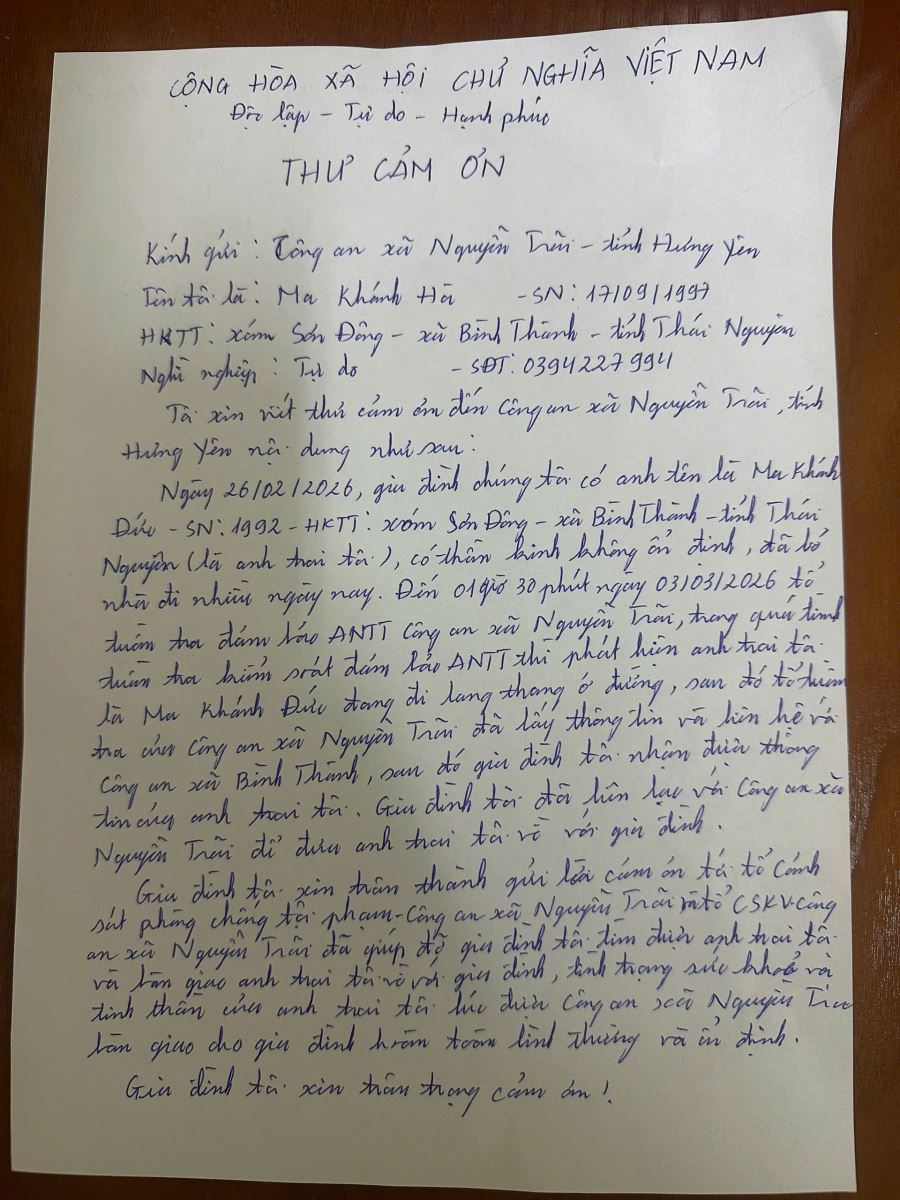 CỘNG HÒA XÃ HỘI CHỦ NGHĨA VIỆT NAM
Độc lập - Tự do - Hạnh phúc
THƯ CẢM ƠN
Kính gửi: Công an xã Nguyễn Trãi - tỉnh Hưng Yên
Tên tôi là: Ma Khánh Hà - SN: 17/09/1997
HKTT: xóm Sơn Đông - xã Bình Thành - tỉnh Thái Nguyên
Nghề nghiệp: Tự do - SĐT: 0394227994
Tôi xin viết thư cảm ơn đến Công an xã Nguyễn Trãi, tỉnh
Hưng Yên nội dung như sau:
Ngày 26/02/2026, gia đình chúng tôi có anh tên là Ma Khánh
Đức - SN: 1992 - HKTT: xóm Sơn Đông - xã Bình Thành - tỉnh Thái
Nguyên (là anh trai tôi), có thần kinh không ổn định, đã bỏ
nhà đi nhiều ngày nay. Đến 01 giờ 30 phút ngày 03/03/2026 tổ
tuần tra đảm bảo ANTT Công an xã Nguyễn Trãi, trong quá trình
tuần tra kiểm soát đảm bảo ANTT thì phát hiện anh trai tôi
là Ma Khánh Đức đang đi lang thang ở đường, sau đó tổ tuần
tra của Công an xã Nguyễn Trãi đã lấy thông tin và liên hệ với
Công an xã Bình Thành, sau đó gia đình tôi nhận được thông
tin của anh trai tôi. Gia đình tôi đã liên lạc với Công an xã
Nguyễn Trãi để đưa anh trai tôi về với gia đình.
Gia đình tôi xin trân thành gửi lời cảm ơn tới tổ Cảnh
sát phòng chống tội phạm - Công an xã Nguyễn Trãi và tổ CSKV - Công
an xã Nguyễn Trãi đã giúp đỡ gia đình tôi tìm được anh trai tôi
và bàn giao anh trai tôi về với gia đình, tình trạng sức khoẻ và
tinh thần của anh trai tôi lúc được Công an xã Nguyễn Trãi
bàn giao cho gia đình hoàn toàn bình thường và ổn định.
Gia đình tôi xin trân trọng cảm ơn!